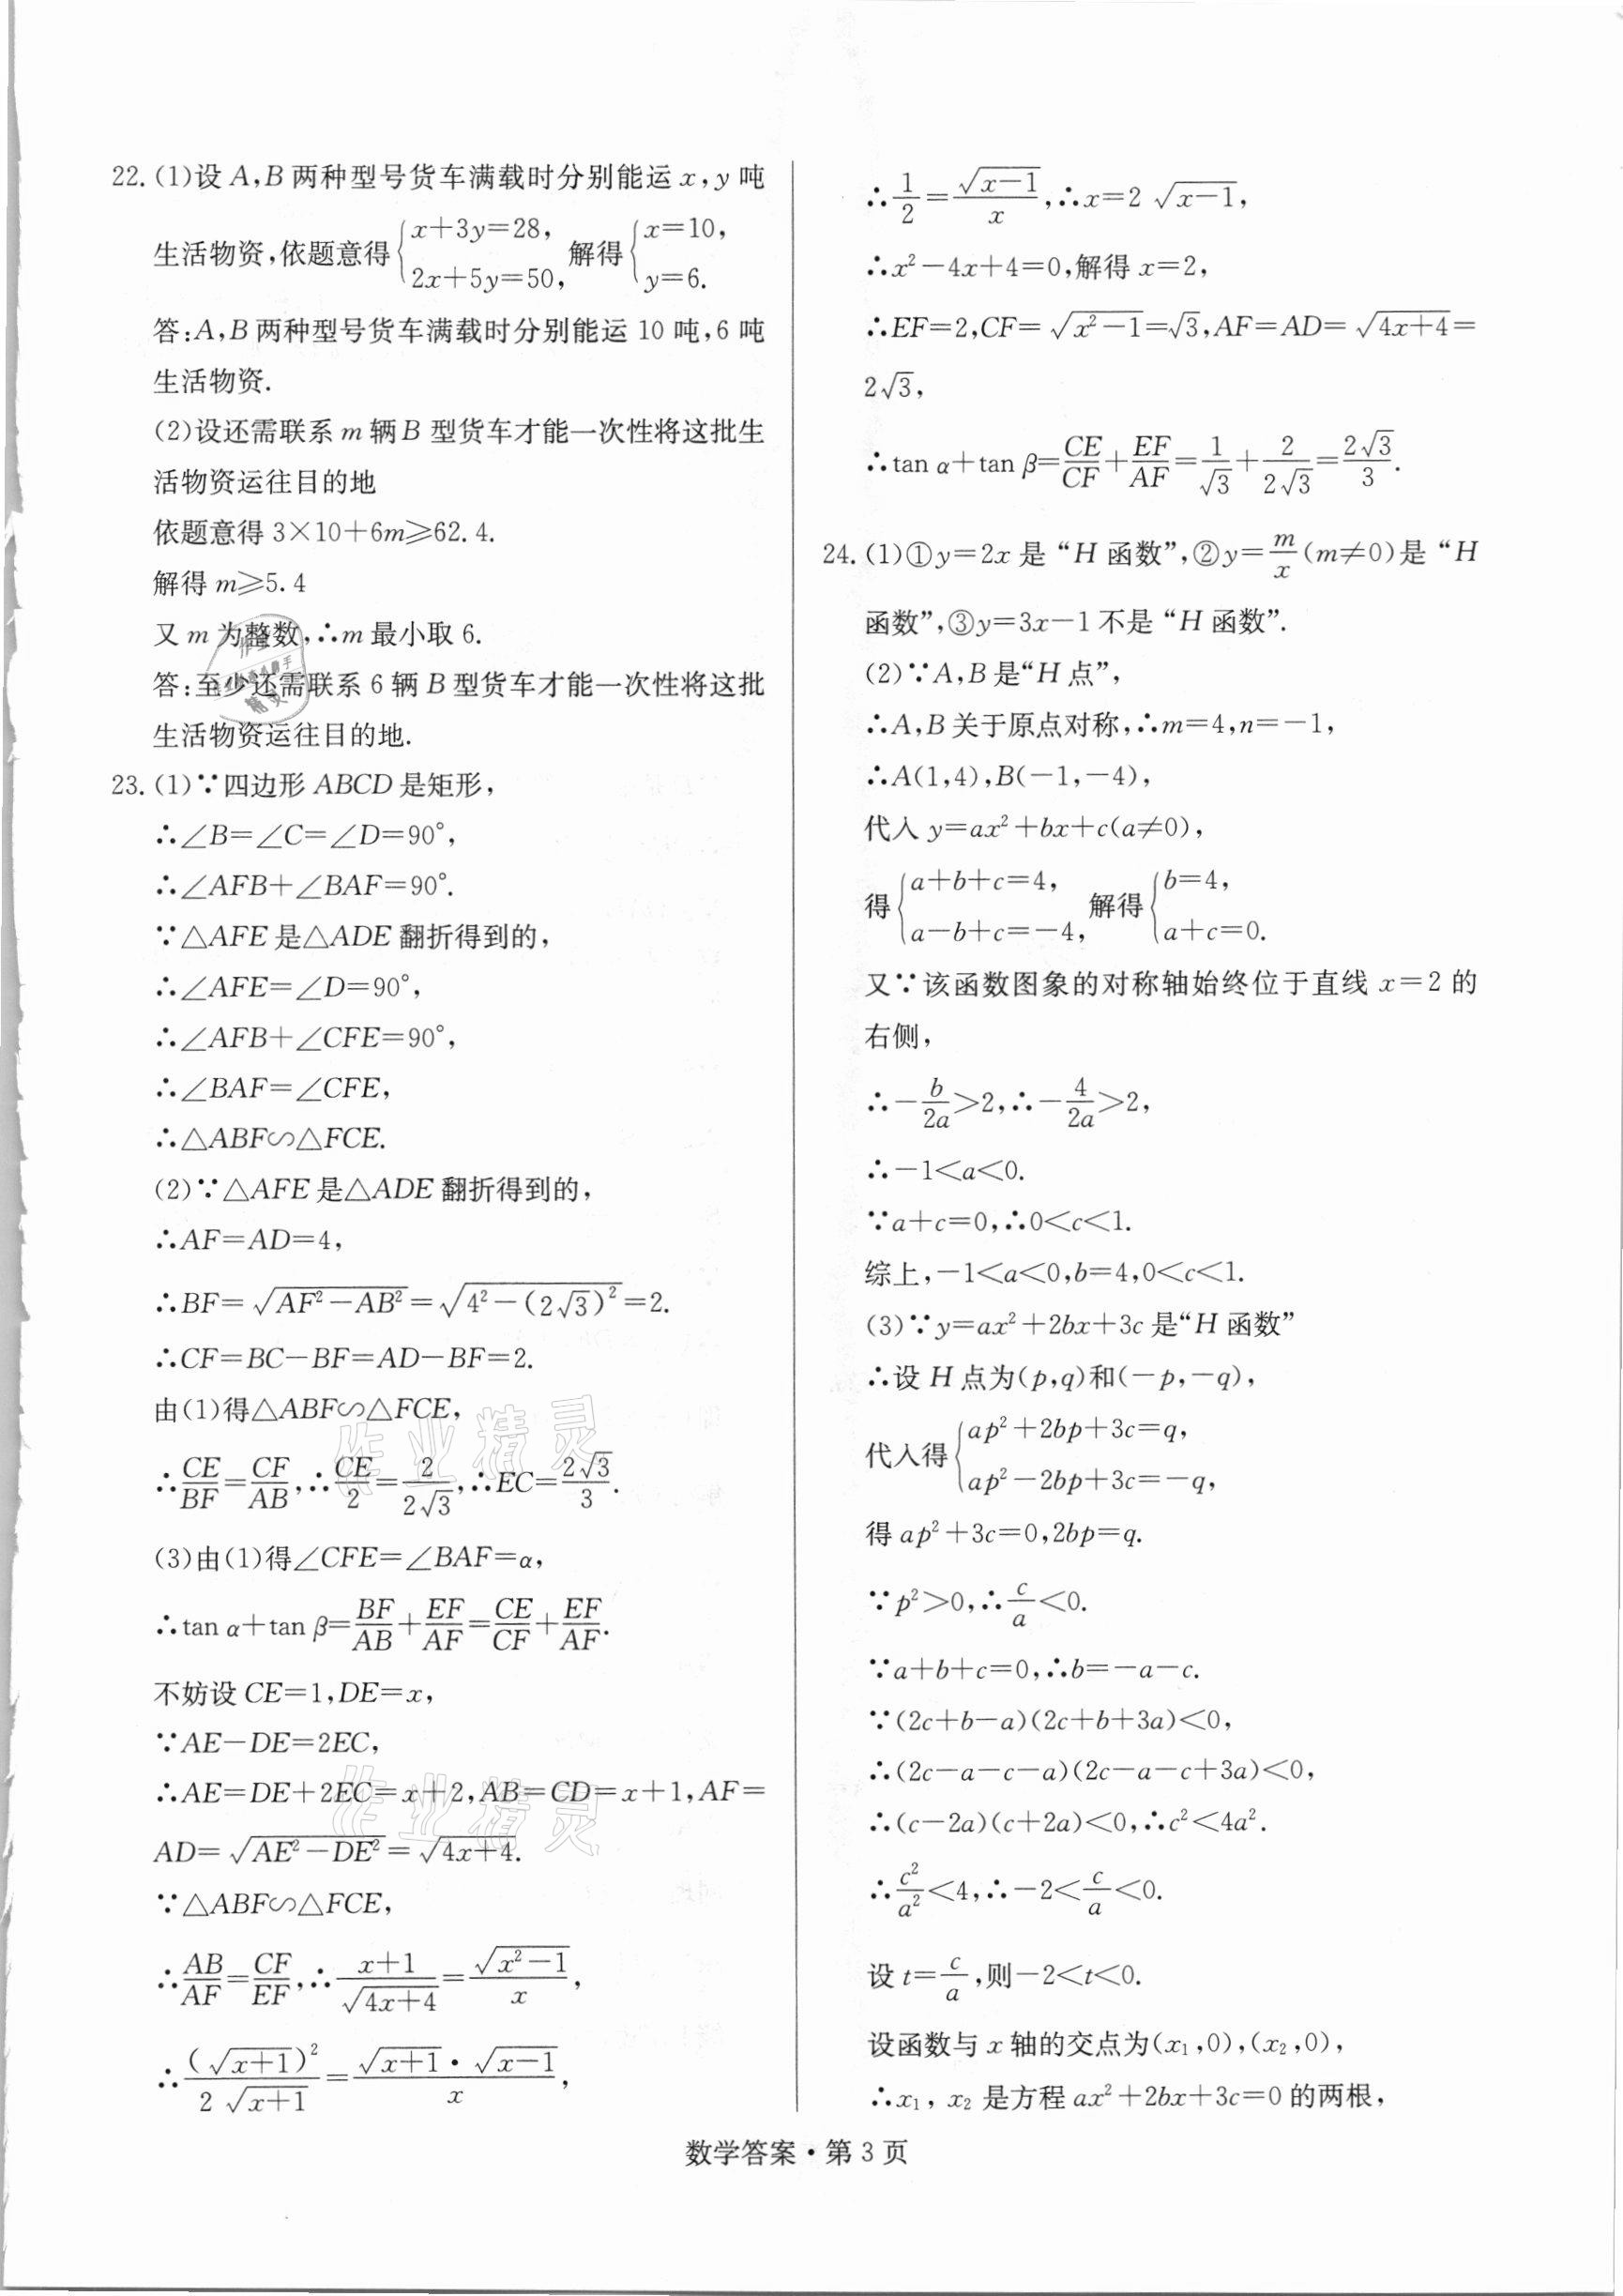 22. (1)设 A,B 两种型号货车满载时分别能运 x,y 吨
生活物资,依题意得{x+3y=28, 2x+5y=50, 解得{x=10, y=6.
答:A,B 两种型号货车满载时分别能运 10 吨,6 吨
生活物资.
(2)设还需联系 m 辆 B 型货车才能一次性将这批生
活物资运往目的地
依题意得 3×10+6m≥62.4.
解得 m≥5.4
又 m 为整数,∴m 最小取 6.
答:至少还需联系 6 辆 B 型货车才能一次性将这批
生活物资运往目的地.
23. (1)∵四边形 ABCD 是矩形,
∴∠B=∠C=∠D=90°,
∴∠AFB+∠BAF=90°.
∵△AFE 是△ADE 翻折得到的,
∴∠AFE=∠D=90°,
∴∠AFB+∠CFE=90°,
∴∠BAF=∠CFE,
∴△ABF∽△FCE.
(2)∵△AFE 是△ADE 翻折得到的,
∴AF=AD=4,
∴BF=√(AF²-AB²)=√(4²-(2√3)²)=2.
∴CF=BC-BF=AD-BF=2.
由(1)得△ABF∽△FCE,
∴CE/BF=CF/AB,∴CE/2=2/(2√3),∴EC=2√3/3.
(3)由(1)得∠CFE=∠BAF=α,
∴tan α+tan β=BF/AB+EF/AF=CE/CF+EF/AF.
不妨设 CE=1,DE=x,
∵AE-DE=2EC,
∴AE=DE+2EC=x+2,AB=CD=x+1,AF=
AD=√(AE²-DE²)=√(4x+4).
∵△ABF∽△FCE,
∴AB/AF=CF/EF,∴(x+1)/√(4x+4)=√(x²-1)/x,
∴(√(x+1))²/(2√(x+1))=√(x+1)·√(x-1)/x,
∴1/2=√(x-1)/x,∴x=2√(x-1),
∴x²-4x+4=0,解得 x=2,
∴EF=2,CF=√(x²-1)=√3,AF=AD=√(4x+4)=
2√3,
∴tan α+tan β=CE/CF+EF/AF=1/√3+2/(2√3)=2√3/3.
24. (1)①y=2x 是“H 函数”,②y=m/x(m≠0)是“H
函数”,③y=3x-1 不是“H 函数”.
(2)∵A,B 是“H 点”,
∴A,B 关于原点对称,∴m=4,n=-1,
∴A(1,4),B(-1,-4),
代入 y=ax²+bx+c(a≠0),
得{a+b+c=4, a-b+c=-4, 解得{b=4, a+c=0.
又∵该函数图象的对称轴始终位于直线 x=2 的
右侧,
∴-b/2a>2,∴-4/2a>2,
∴-1<a<0.
∵a+c=0,∴0<c<1.
综上,-1<a<0,b=4,0<c<1.
(3)∵y=ax²+2bx+3c 是“H 函数”
∴设 H 点为(p,q)和(-p,-q),
代入得{ap²+2bp+3c=q, ap²-2bp+3c=-q,
得 ap²+3c=0,2bp=q.
∵p²>0,∴c/a<0.
∵a+b+c=0,∴b=-a-c.
∵(2c+b-a)(2c+b+3a)<0,
∴(2c-a-c-a)(2c-a-c+3a)<0,
∴(c-2a)(c+2a)<0,∴c²<4a².
∴c²/a²<4,∴-2<c/a<0.
设 t=c/a,则-2<t<0.
设函数与 x 轴的交点为(x₁,0),(x₂,0),
∴x₁, x₂ 是方程 ax²+2bx+3c=0 的两根,
数学答案·第 3 页
作业精灵
作业精灵